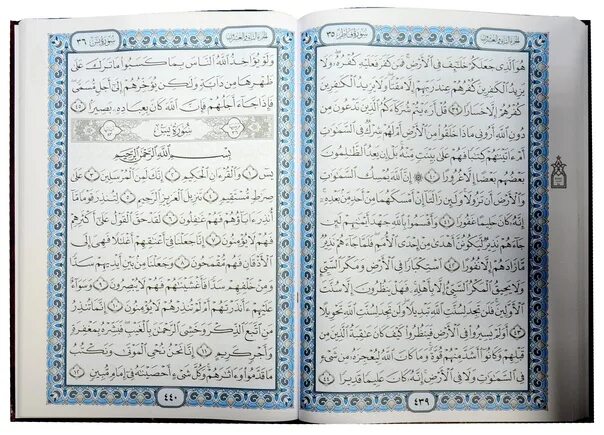 الجزء الثاني والعشرون سورة فاطر ٣٥
هُوَ ٱلَّذِى جَعَلَكُمْ خَلَٰٓئِفَ فِى ٱلْأَرْضِ فَمَن كَفَرَ فَعَلَيْهِ كُفْرُهُۥ وَلَا
يَزِيدُ ٱلْكَٰفِرِينَ كُفْرُهُمْ عِندَ رَبِّهِمْ إِلَّا مَقْتًا وَلَا يَزِيدُ ٱلْكَٰفِرِينَ
كُفْرُهُمْ إِلَّا خَسَارًا ٣٩ قُلْ أَرَءَيْتُمْ شُرَكَآءَكُمُ ٱلَّذِينَ تَدْعُونَ مِن
دُونِ ٱللَّهِ أَرُونِى مَاذَا خَلَقُوا۟ مِنَ ٱلْأَرْضِ أَمْ لَهُمْ شِرْكٌ فِى ٱلسَّمَٰوَٰتِ
أَمْ ءَاتَيْنَٰهُمْ كِتَٰبًا فَهُمْ عَلَىٰ بَيِّنَتٍ مِّنْهُ بَلْ إِن يَعِدُ ٱلظَّٰلِمُونَ
بَعْضُهُم بَعْضًا إِلَّا غُرُورًا ٤٠ إِنَّ ٱللَّهَ يُمْسِكُ ٱلسَّمَٰوَٰتِ
وَٱلْأَرْضَ أَن تَزُولَا وَلَئِن زَالَتَآ إِنْ أَمْسَكَهُمَا مِنْ أَحَدٍ مِّنۢ بَعْدِهِۦٓ
إِنَّهُۥ كَانَ حَلِيمًا غَفُورًا ٤١ وَأَقْسَمُوا۟ بِٱللَّهِ جَهْدَ أَيْمَٰنِهِمْ لَئِن
جَآءَهُمْ نَذِيرٌ لَّيَكُونُنَّ أَهْدَىٰ مِنْ إِحْدَى ٱلْأُمَمِ فَلَمَّا جَآءَهُمْ نَذِيرٌ
مَّا زَادَهُمْ إِلَّا نُفُورًا ٤٢ ٱسْتِكْبَارًا فِى ٱلْأَرْضِ وَمَكْرَ ٱلسَّيِّئِ
وَلَا يَحِيقُ ٱلْمَكْرُ ٱلسَّيِّئُ إِلَّا بِأَهْلِهِۦ فَهَلْ يَنظُرُونَ إِلَّا سُنَّتَ
ٱلْأَوَّلِينَ فَلَن تَجِدَ لِسُنَّتِ ٱللَّهِ تَبْدِيلًا وَلَن تَجِدَ لِسُنَّتِ ٱللَّهِ تَحْوِيلًا
٤٣ أَوَلَمْ يَسِيرُوا۟ فِى ٱلْأَرْضِ فَيَنظُرُوا۟ كَيْفَ كَانَ عَٰقِبَةُ ٱلَّذِينَ مِن
قَبْلِهِمْ وَكَانُوٓا۟ أَشَدَّ مِنْهُمْ قُوَّةً وَمَا كَانَ ٱللَّهُ لِيُعْجِزَهُۥ مِن شَىْءٍ
فِى ٱلسَّمَٰوَٰتِ وَلَا فِى ٱلْأَرْضِ إِنَّهُۥ كَانَ عَلِيمًا قَدِيرًا ٤٤
٤٣٩
الجزء الثاني والعشرون سورة يس ٣٦
وَلَوْ يُؤَاخِذُ ٱللَّهُ ٱلنَّاسَ بِمَا كَسَبُوا۟ مَا تَرَكَ عَلَىٰ
ظَهْرِهَا مِن دَآبَّةٍ وَلَٰكِن يُؤَخِّرُهُمْ إِلَىٰٓ أَجَلٍ مُّسَمًّى
فَإِذَا جَآءَ أَجَلُهُمْ فَإِنَّ ٱللَّهَ كَانَ بِعِبَادِهِۦ بَصِيرًۢا ٤٥
سُورَةُ يسٓ
بِسْمِ ٱللَّهِ ٱلرَّحْمَٰنِ ٱلرَّحِيمِ
يسٓ ١ وَٱلْقُرْءَانِ ٱلْحَكِيمِ ٢ إِنَّكَ لَمِنَ ٱلْمُرْسَلِينَ ٣ عَلَىٰ
صِرَٰطٍ مُّسْتَقِيمٍ ٤ تَنزِيلَ ٱلْعَزِيزِ ٱلرَّحِيمِ ٥ لِتُنذِرَ قَوْمًا مَّآ
أُنذِرَ ءَابَآؤُهُمْ فَهُمْ غَٰفِلُونَ ٦ لَقَدْ حَقَّ ٱلْقَوْلُ عَلَىٰٓ أَكْثَرِهِمْ
فَهُمْ لَا يُؤْمِنُونَ ٧ إِنَّا جَعَلْنَا فِىٓ أَعْنَٰقِهِمْ أَغْلَٰلًا فَهِىَ إِلَى
ٱلْأَذْقَانِ فَهُم مُّقْمَحُونَ ٨ وَجَعَلْنَا مِنۢ بَيْنِ أَيْدِيهِمْ سَدًّا
وَمِنْ خَلْفِهِمْ سَدًّا فَأَغْشَيْنَٰهُمْ فَهُمْ لَا يُبْصِرُونَ ٩ وَسَوَآءٌ
عَلَيْهِمْ ءَأَنذَرْتَهُمْ أَمْ لَمْ تُنذِرْهُمْ لَا يُؤْمِنُونَ ١٠ إِنَّمَا تُنذِرُ
مَنِ ٱتَّبَعَ ٱلذِّكْرَ وَخَشِىَ ٱلرَّحْمَٰنَ بِٱلْغَيْبِ فَبَشِّرْهُ بِمَغْفِرَةٍ
وَأَجْرٍ كَرِيمٍ ١١ إِنَّا نَحْنُ نُحْىِ ٱلْمَوْتَىٰ وَنَكْتُبُ
مَا قَدَّمُوا۟ وَءَاثَٰرَهُمْ وَكُلَّ شَىْءٍ أَحْصَيْنَٰهُ فِىٓ إِمَامٍ مُّبِينٍ ١٢
٤٤٠